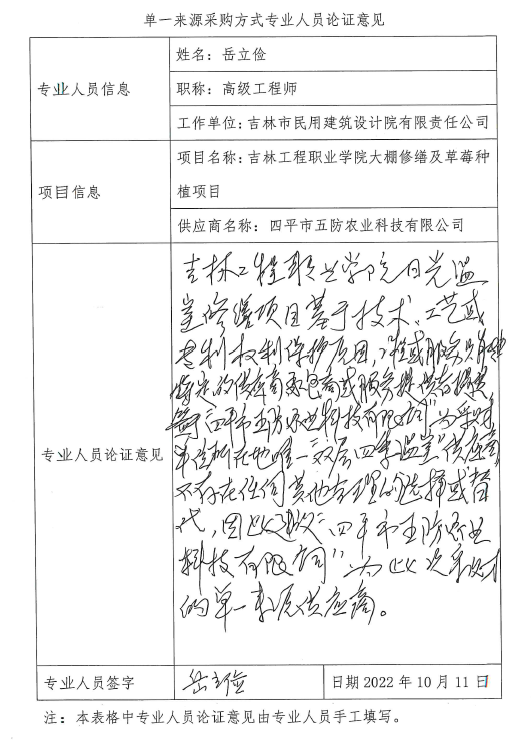 单一来源采购方式专业人员论证意见
专业人员信息
姓名：岳立俭
职称：高级工程师
工作单位：吉林市民用建筑设计院有限责任公司
项目信息
项目名称：吉林工程职业学院大棚修缮及草莓种
植项目
供应商名称：四平市五防农业科技有限公司
专业人员论证意见
吉林工程职业学院日光温
室修缮项目基于技术、工艺或
专利权利保护原因，或服务只能
特定的供应商或服务提供者提供
四平市五防农业科技有限公司"为采购
单位所在地唯一"双层四季温室"供应商
不存在任何其他合理的选择或替
代，因此建议"四平市五防农业
科技有限公司"为此次采购
的单一来源供应商。
专业人员签字
岳立俭
日期 2022 年 10 月 11 日
注：本表格中专业人员论证意见由专业人员手工填写。